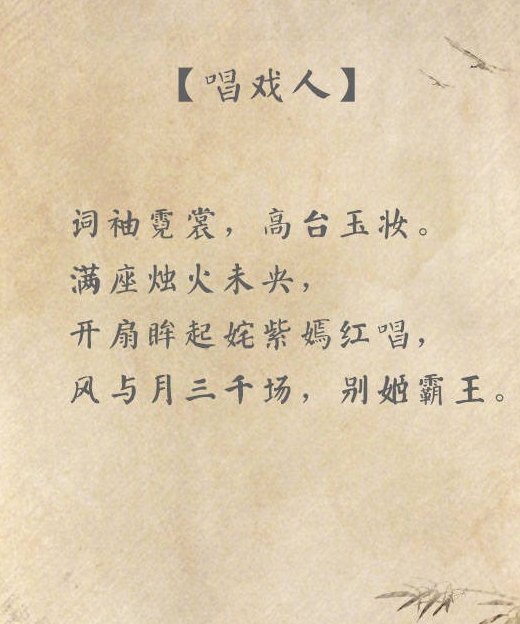 【唱戏人】
词袖霓裳，高台玉妆。
满座烛火未央，
开扇眸起姹紫嫣红唱，
风与月三千场，别姬霸王。